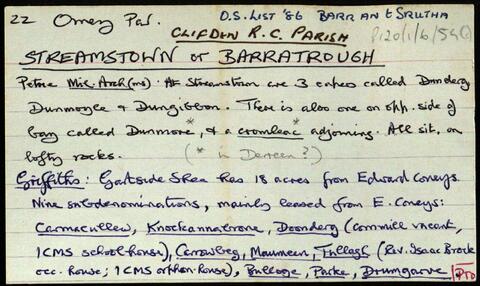 22 Omey Par. O.S. LIST '86 BARR AN tSRUTHA
CLIFDEN R.C. PARISH P120/1/6/59(1)
STREAMSTOWN or BARRATROUGH
Petrie Mil. Arch (ms) At Streamstown are 3 capes called Doonderg
Dunmoyle & Dungibbon. There is also one on opp. side of
bay called Dunmore, & a cromleac* adjoining. All sit. on
lofty rocks. (* in Derreen?)
Griffiths: Gartside Skea has 18 acres from Edward Coneys.
Nine subdenominations, mainly leased from E. Coneys:
Carmacullew, Knockannabrone, Doonderg (corn mill vacant,
ICMS school-house), Carrowbeg, Maumeen, Tullagh (Rev. Isaac Brock
occ. house; ICMS orphan-house), Bulloge, Parke, Drumgarve | PTO